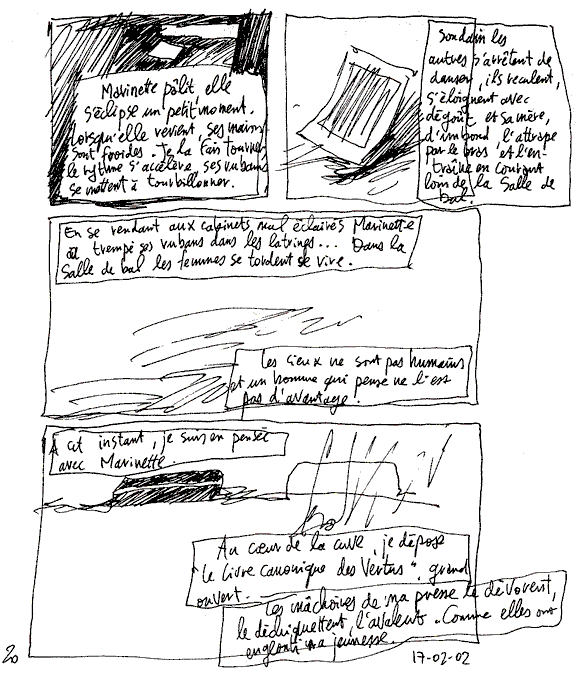 Marinette pâlit, elle
s'éclipse un petit moment.
Lorsqu'elle revient, ses mains
sont froides. Je la fais tourner
le rytme s'accélère, ses rubans
se mettent à tourbillonner.
Soudain les
autres s'arrêtent de
danser, ils reculent,
s'éloignent avec
dégoût et sa mère,
d'un bond l'attrape
par le bras et l'en-
traîne en courant
loin de la salle de
bal.
En se rendant aux cabinets mal éclairés Marinette
a trempé ses rubans dans les latrines... Dans la
salle de bal les femmes se tordent de rire.
Les cieux ne sont pas humains
et un homme qui pense ne l'est
pas d'avantage.
A cet instant, je suis en pensée
avec Marinette.
Au cœur de la cuve, je dépose
"Le Livre canonique des Vertus" grand
ouvert.
Les mâchoires de ma presse le dévorent,
le déchiquettent, l'avalent. Comme elles ont
englouti ma jeunesse.
20
17-02-02